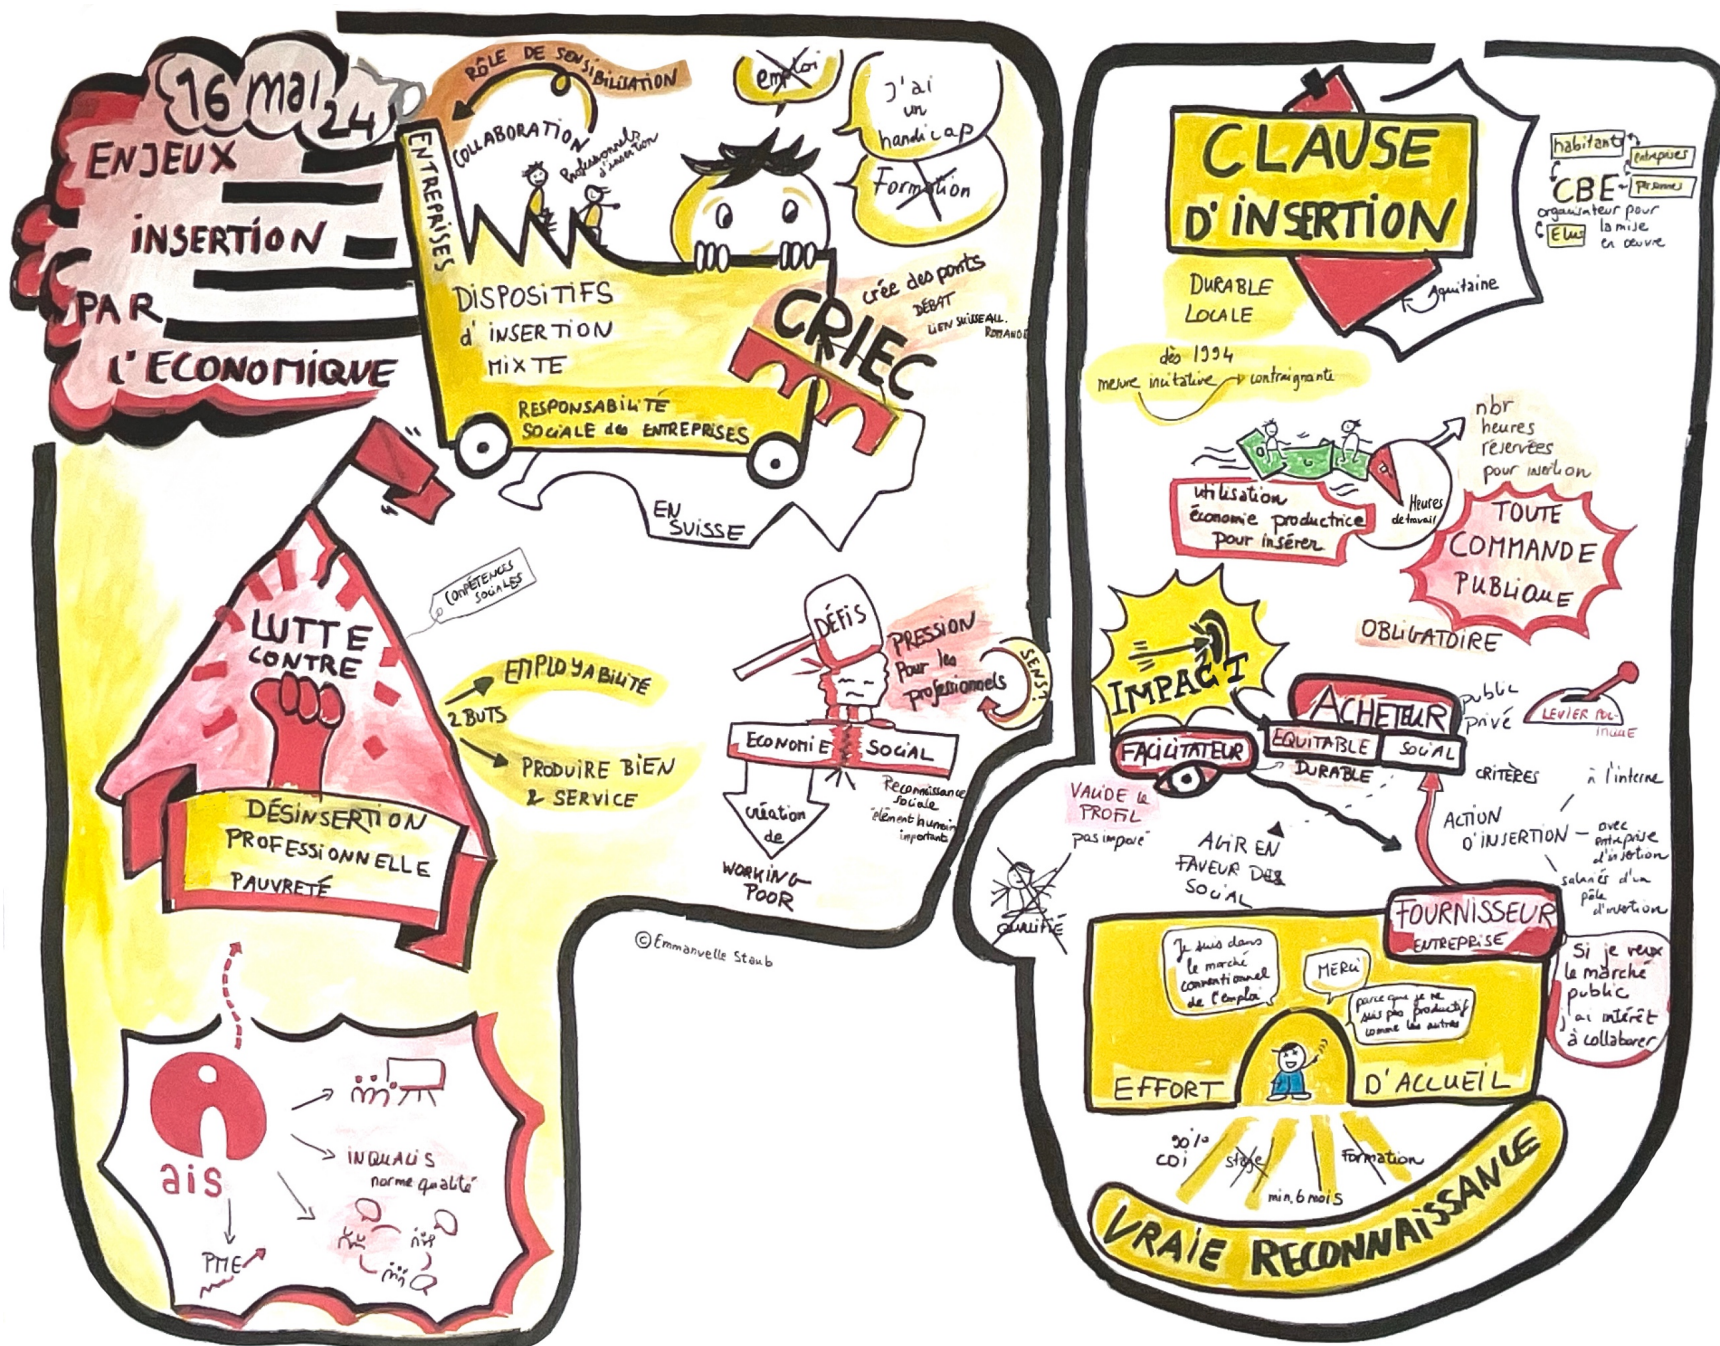 16 mai 24
ENJEUX
INSERTION
PAR
L'ECONOMIQUE
RÔLE DE SENSIBILISATION
COLLABORATION
Professionnels
d'insertion
ENTREPRISES
emploi
J'ai
un
handicap
Formation
DISPOSITIFS
d'INSERTION
MIXTE
RESPONSABILITÉ
SOCIALE des ENTREPRISES
CRIEC
crée des ponts
DÉBAT
LIEN SUISSE ALL.
ROMANDE
EN
SUISSE
LUTTE
CONTRE
DÉSINSERTION
PROFESSIONNELLE
PAUVRETÉ
COMPÉTENCES
SOCIALES
2 BUTS
EMPLOYABILITÉ
PRODUIRE BIEN
& SERVICE
DÉFIS
PRESSION
Pour les
professionnels
SENS?
ECONOMIE
SOCIAL
création
de
WORKING
POOR
Reconnaissance
sociale
élément humain
important
©Emmanuelle Staub
ais
INQUALIS
norme qualité
PME
CLAUSE
D'INSERTION
Aquitaine
habitant
entreprises
CBE
personnes
organisateur pour
la mise
en œuvre
Elus
DURABLE
LOCALE
dès 1994
mesure incitative → contraignante
nbr
heures
réservées
pour insertion
Heures
de travail
utilisation
économie productrice
pour insérer
TOUTE
COMMANDE
PUBLIQUE
OBLIGATOIRE
IMPACT
ACHETEUR
public
privé
LEVIER POLI-
TIQUE
FACILITATEUR
EQUITABLE
SOCIAL
DURABLE
CRITÈRES
VALIDE le
PROFIL
pas imposé
QUALIFIÉ
AGIR EN
FAVEUR DES
SOCIAL
ACTION
D'INSERTION
à l'interne
avec
entreprise
d'insertion
salariés d'un
pôle
d'insertion
FOURNISSEUR
ENTREPRISE
Si je veux
le marché
public
j'ai intérêt
à collaborer
Je suis dans
le marché
conventionnel
de l'emploi
MERCI
parce que je ne
suis pas productif
comme les autres
EFFORT
D'ACCUEIL
90%
CDI
stage
min. 6 mois
Formation
VRAIE RECONNAISSANCE